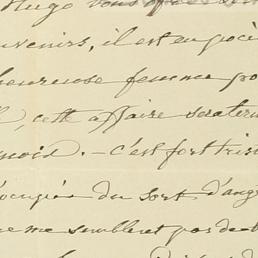 Hugo vous
uvenirs, il est en procè
heureuse femme po
, cette affaire sera ter
mois. – c'est fort tris
occupée du sort d'ang
e me semblent pas de